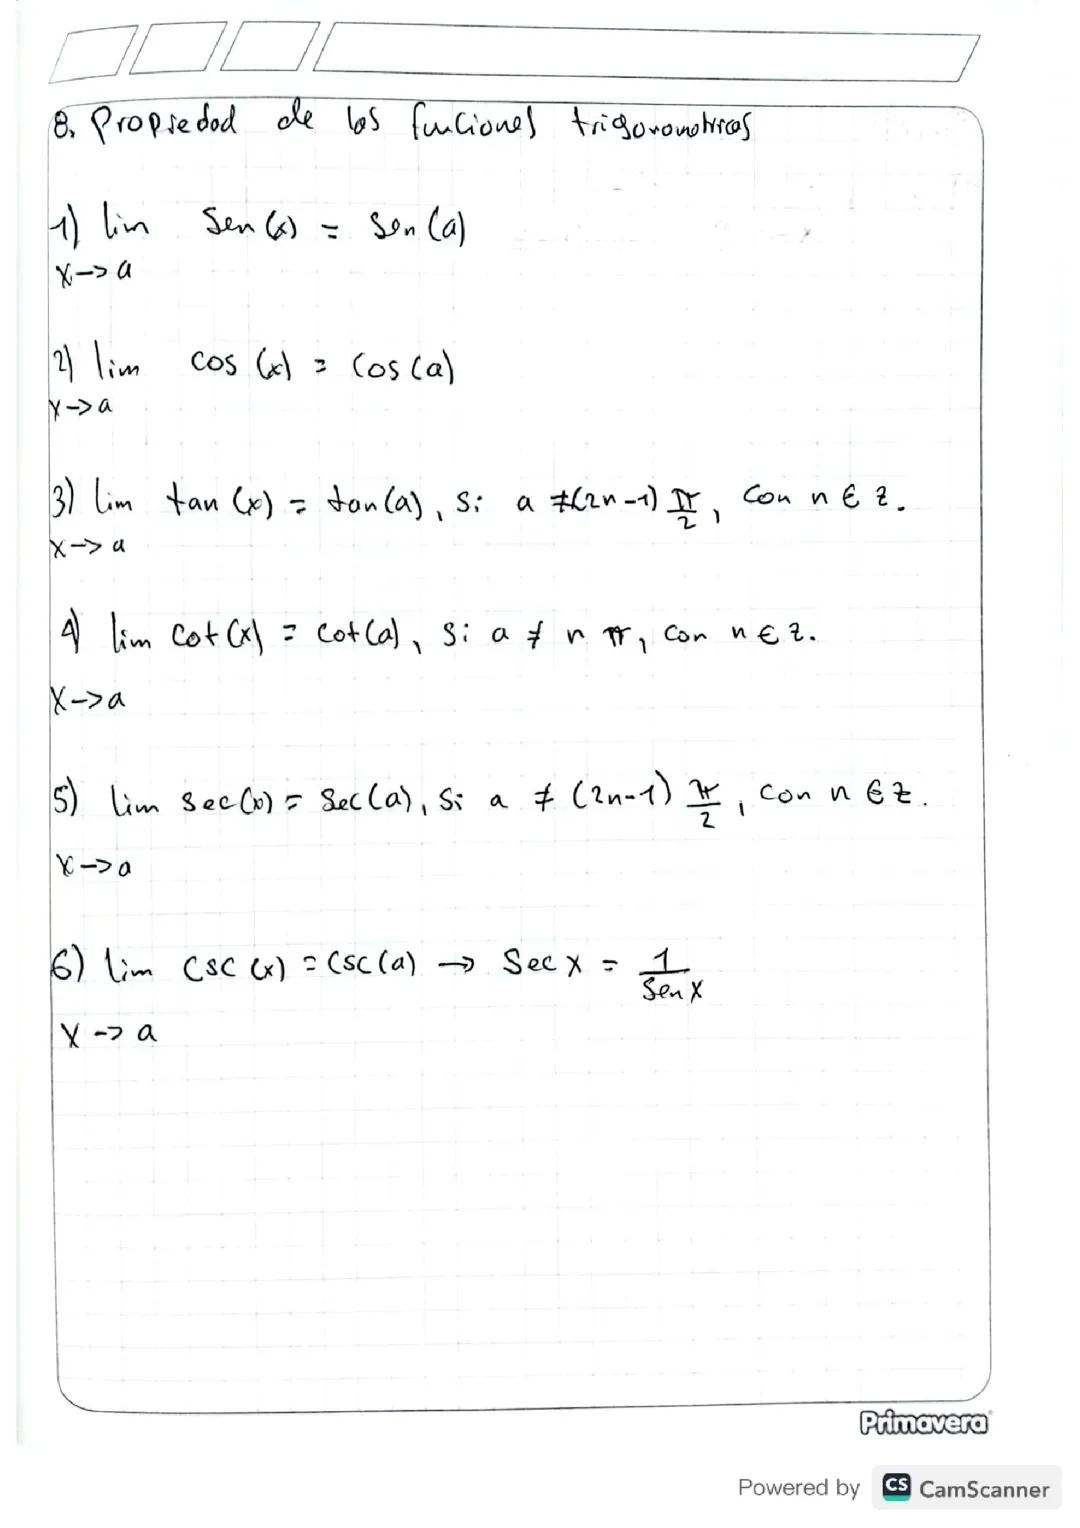 8. Propiedad de las funciones trigoronometricas
1) lim Sen (x) = Sen (a)
x -> a
2) lim cos (x) = cos (a)
x -> a
3) lim tan (x) = tan (a), si a ≠ (2n-1) π/2, con n ∈ z.
x -> a
4) lim cot (x) = cot (a), si a ≠ n π, con n ∈ z.
x -> a
5) lim sec (x) = sec (a), si a ≠ (2n-1) π/2, con n ∈ z.
x -> a
6) lim csc (x) = csc (a) -> Sec x = 1/Sen x
x -> a
Primavera
Powered by CS CamScanner